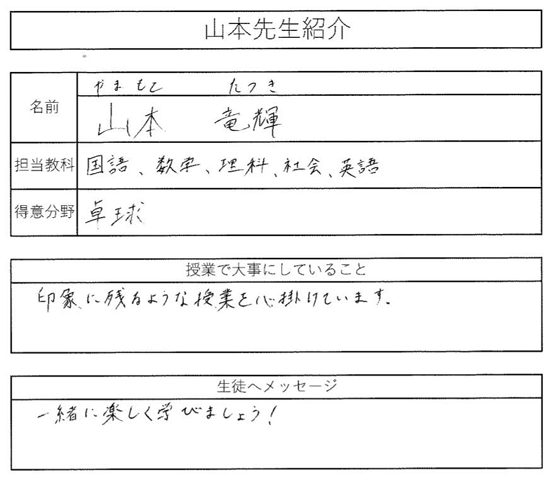 山本先生紹介
やまもと　たつき
名前
山本　竜輝
担当教科
国語、数学、理科、社会、英語
得意分野
卓球
授業で大事にしていること
印象に残るような授業を心掛けています。
生徒へメッセージ
一緒に楽しく学びましょう！